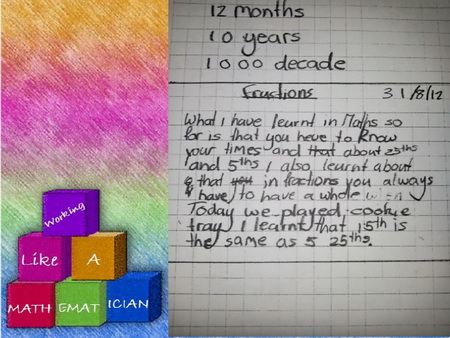 12 months
10 years
1000 decade
Fractions 31/8/12
What I have learnt in Maths so
far is that you have to know
your times and that about 25ths
and 5ths I also learnt about
that you in fractions you always
have to have a whole
Today we played cookie
tray I learnt that 1 5th is
the same as 5 25ths.
Working
Like A
MATH EMAT ICIAN